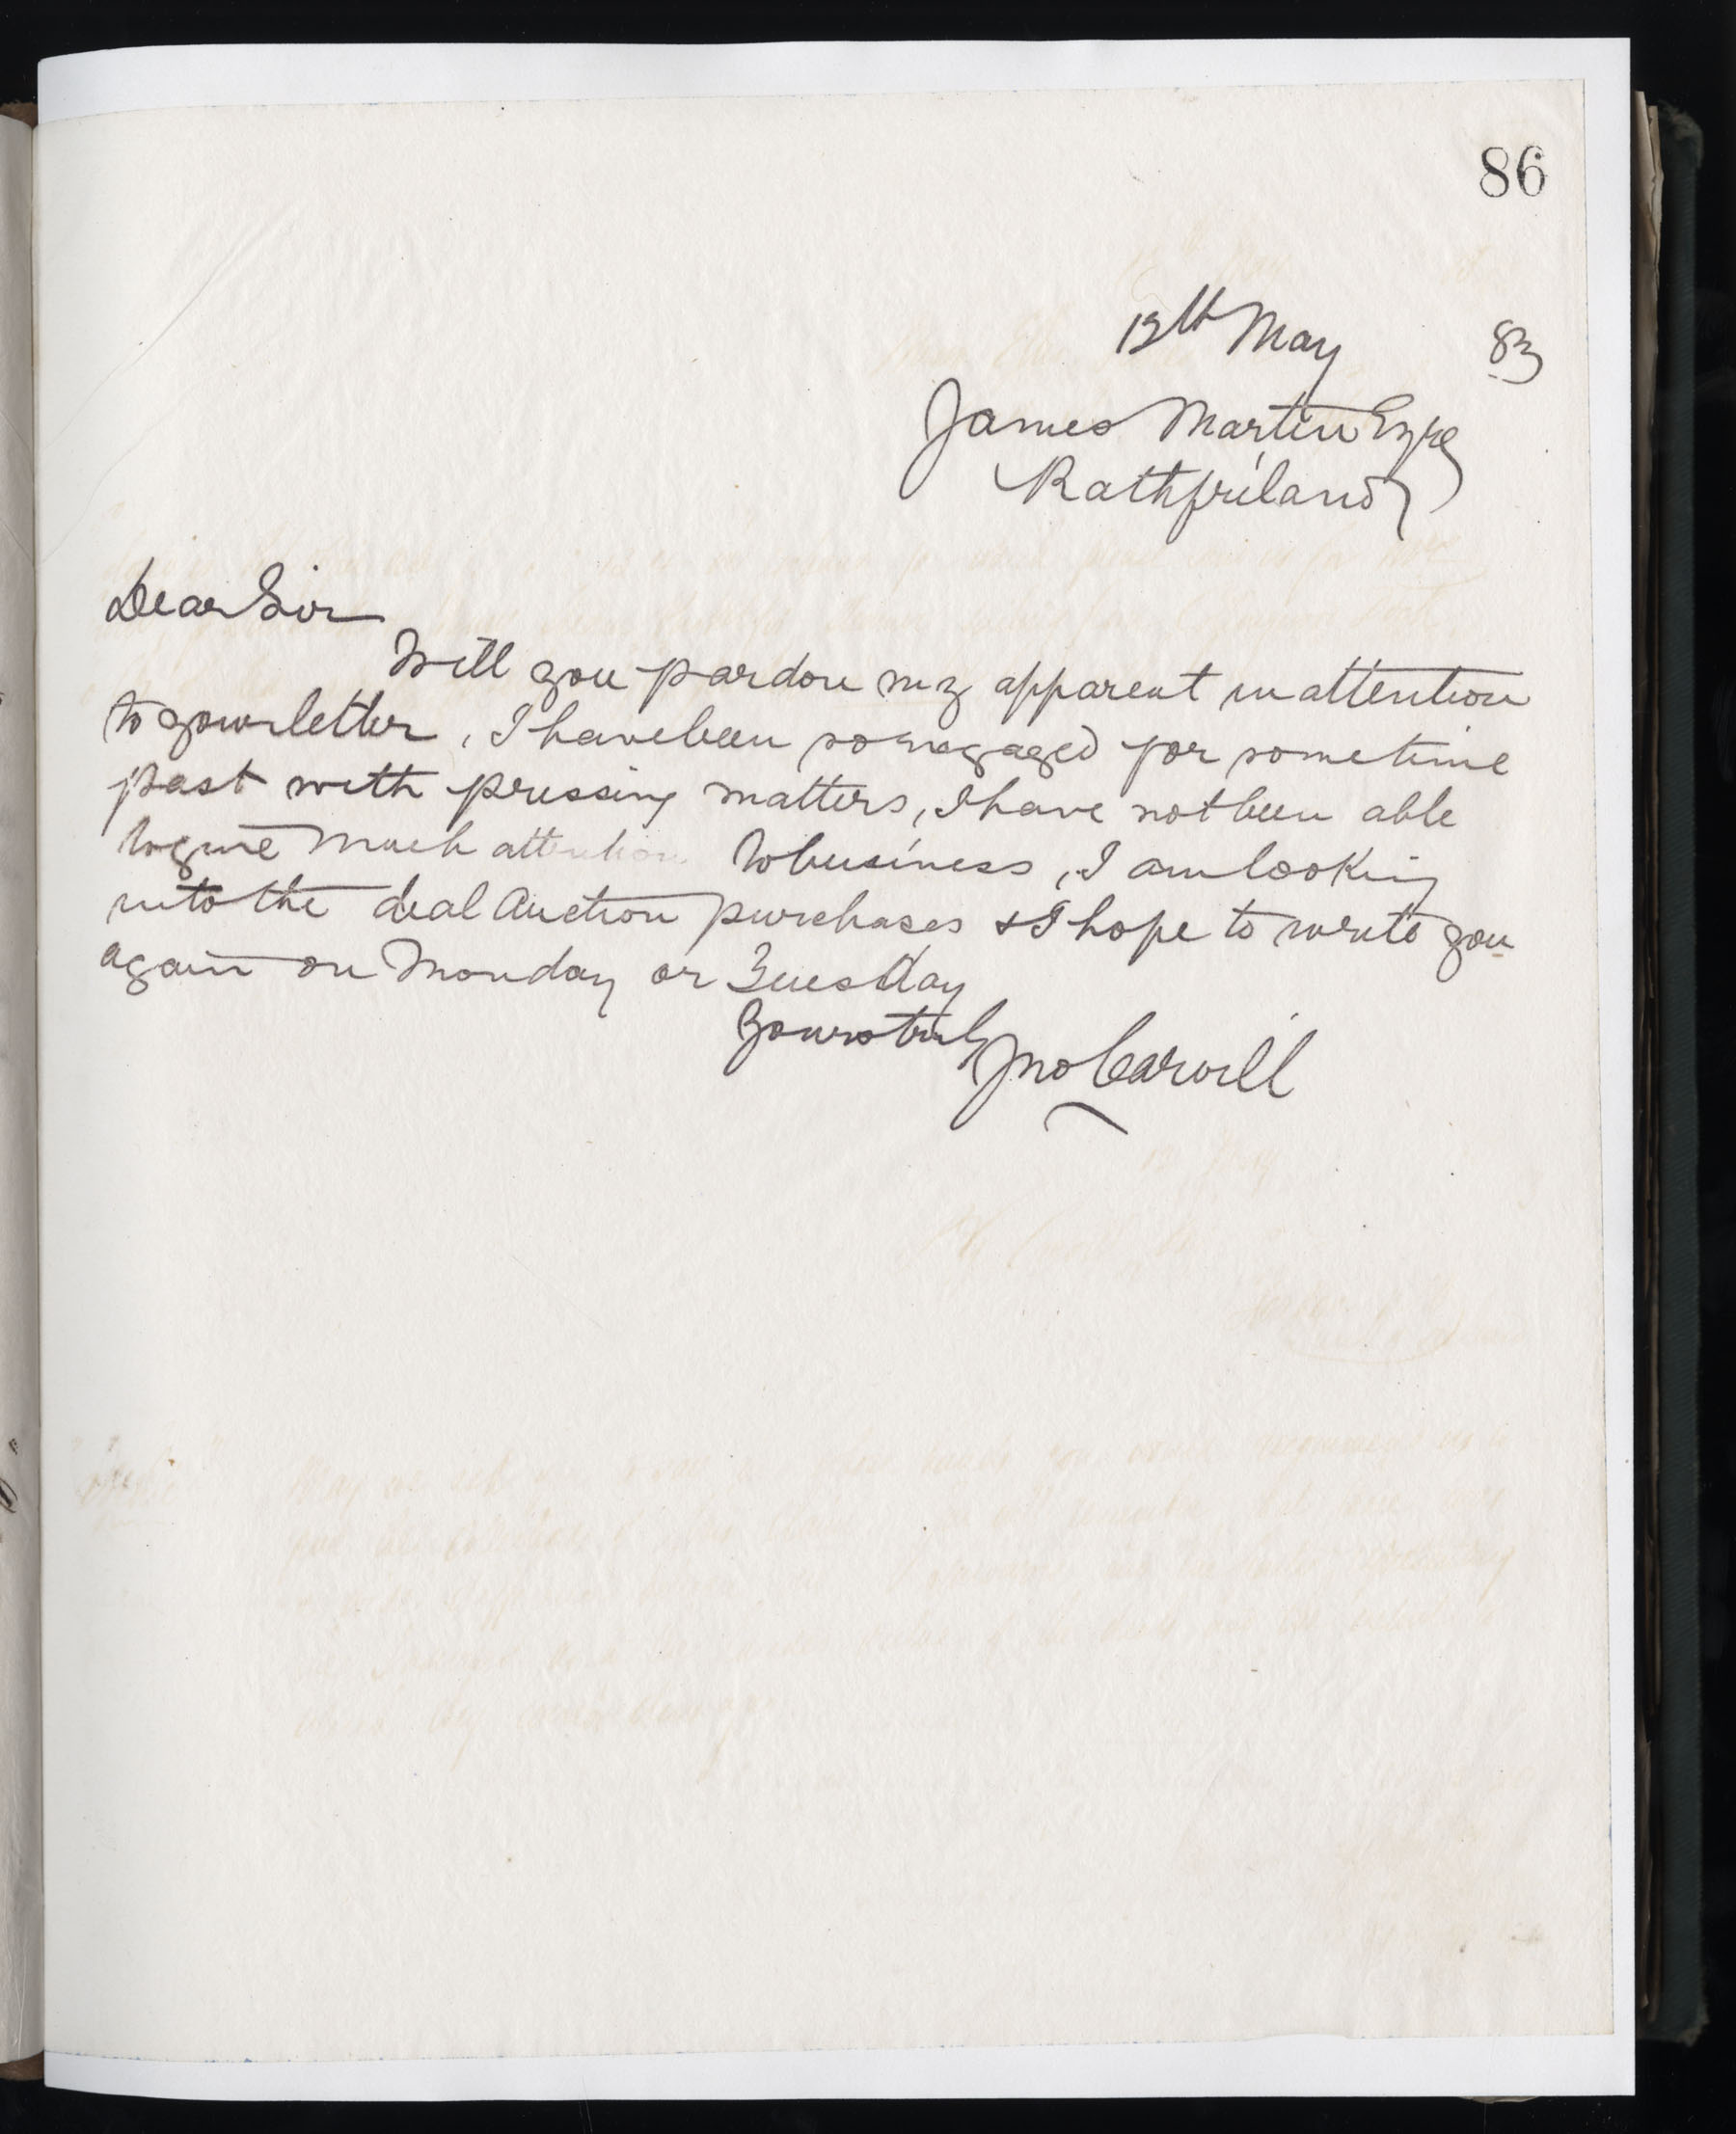 86
12th May 83
James Martin Esqre
Rathfriland
Dear Sir
Will you pardon my apparent inattention
to your letter, I have been so engaged for sometime
past with pressing matters, I have not been able
to give much attention to business, I am looking
into the deal Auction purchases & I hope to write you
again on Monday or Tuesday
Yours truly Jno Carvill